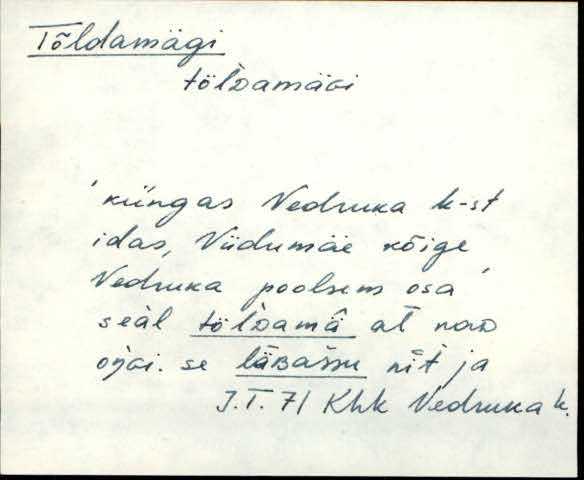 Tõldamägi
tölDamäGi
'küngas Vedruka k-st
idas, Viidumäe kõige
Vedruka poolsem osa'
seäl tölDamâ at naD
se läBaššu nīt ja
J.T. 71 Khk Vedruka k.